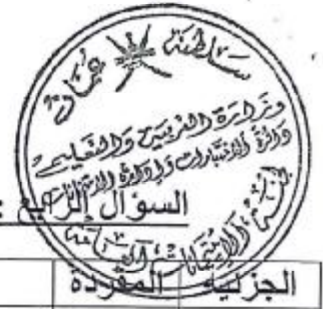 سلطنة عمان
وزارة التربية والتعليم
دائرة الاختبارات وإدارة الامتحانات
السؤال الرابع :
الجزئية المفردة